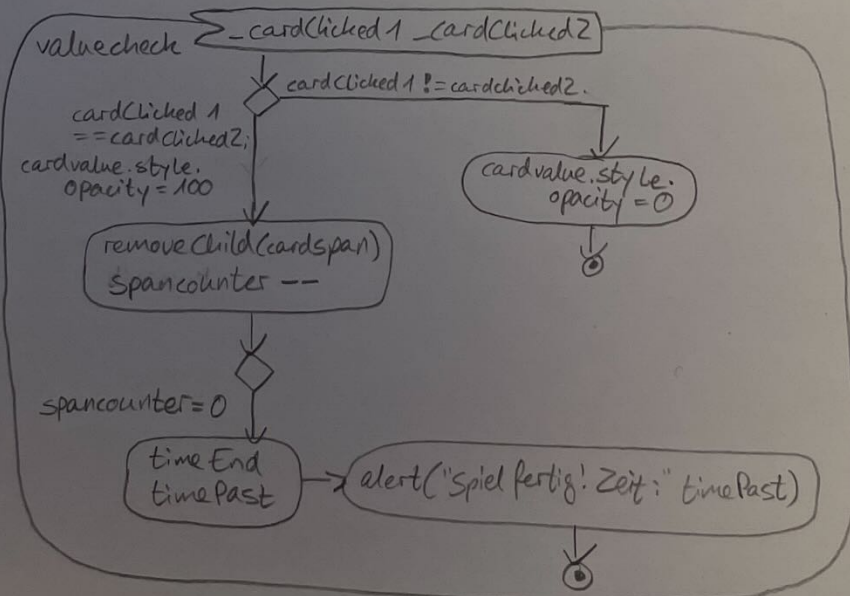 valuecheck
_cardClicked1 _cardClicked2
cardClicked1 != cardclicked2.
cardClicked 1
==cardclicked2;
cardvalue.style.
opacity = 100
cardvalue.style.
opacity = 0
removeChild(cardspan)
spancounter --
spancounter = 0
timeEnd
timePast
alert("Spiel fertig! Zeit:" timePast)